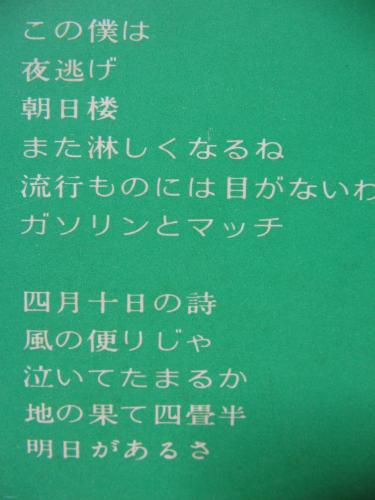 この僕は
夜逃げ
朝日楼
また淋しくなるね
流行ものには目がないわ
ガソリンとマッチ
四月十日の詩
風の便りじゃ
泣いてたまるか
地の果て四畳半
明日があるさ